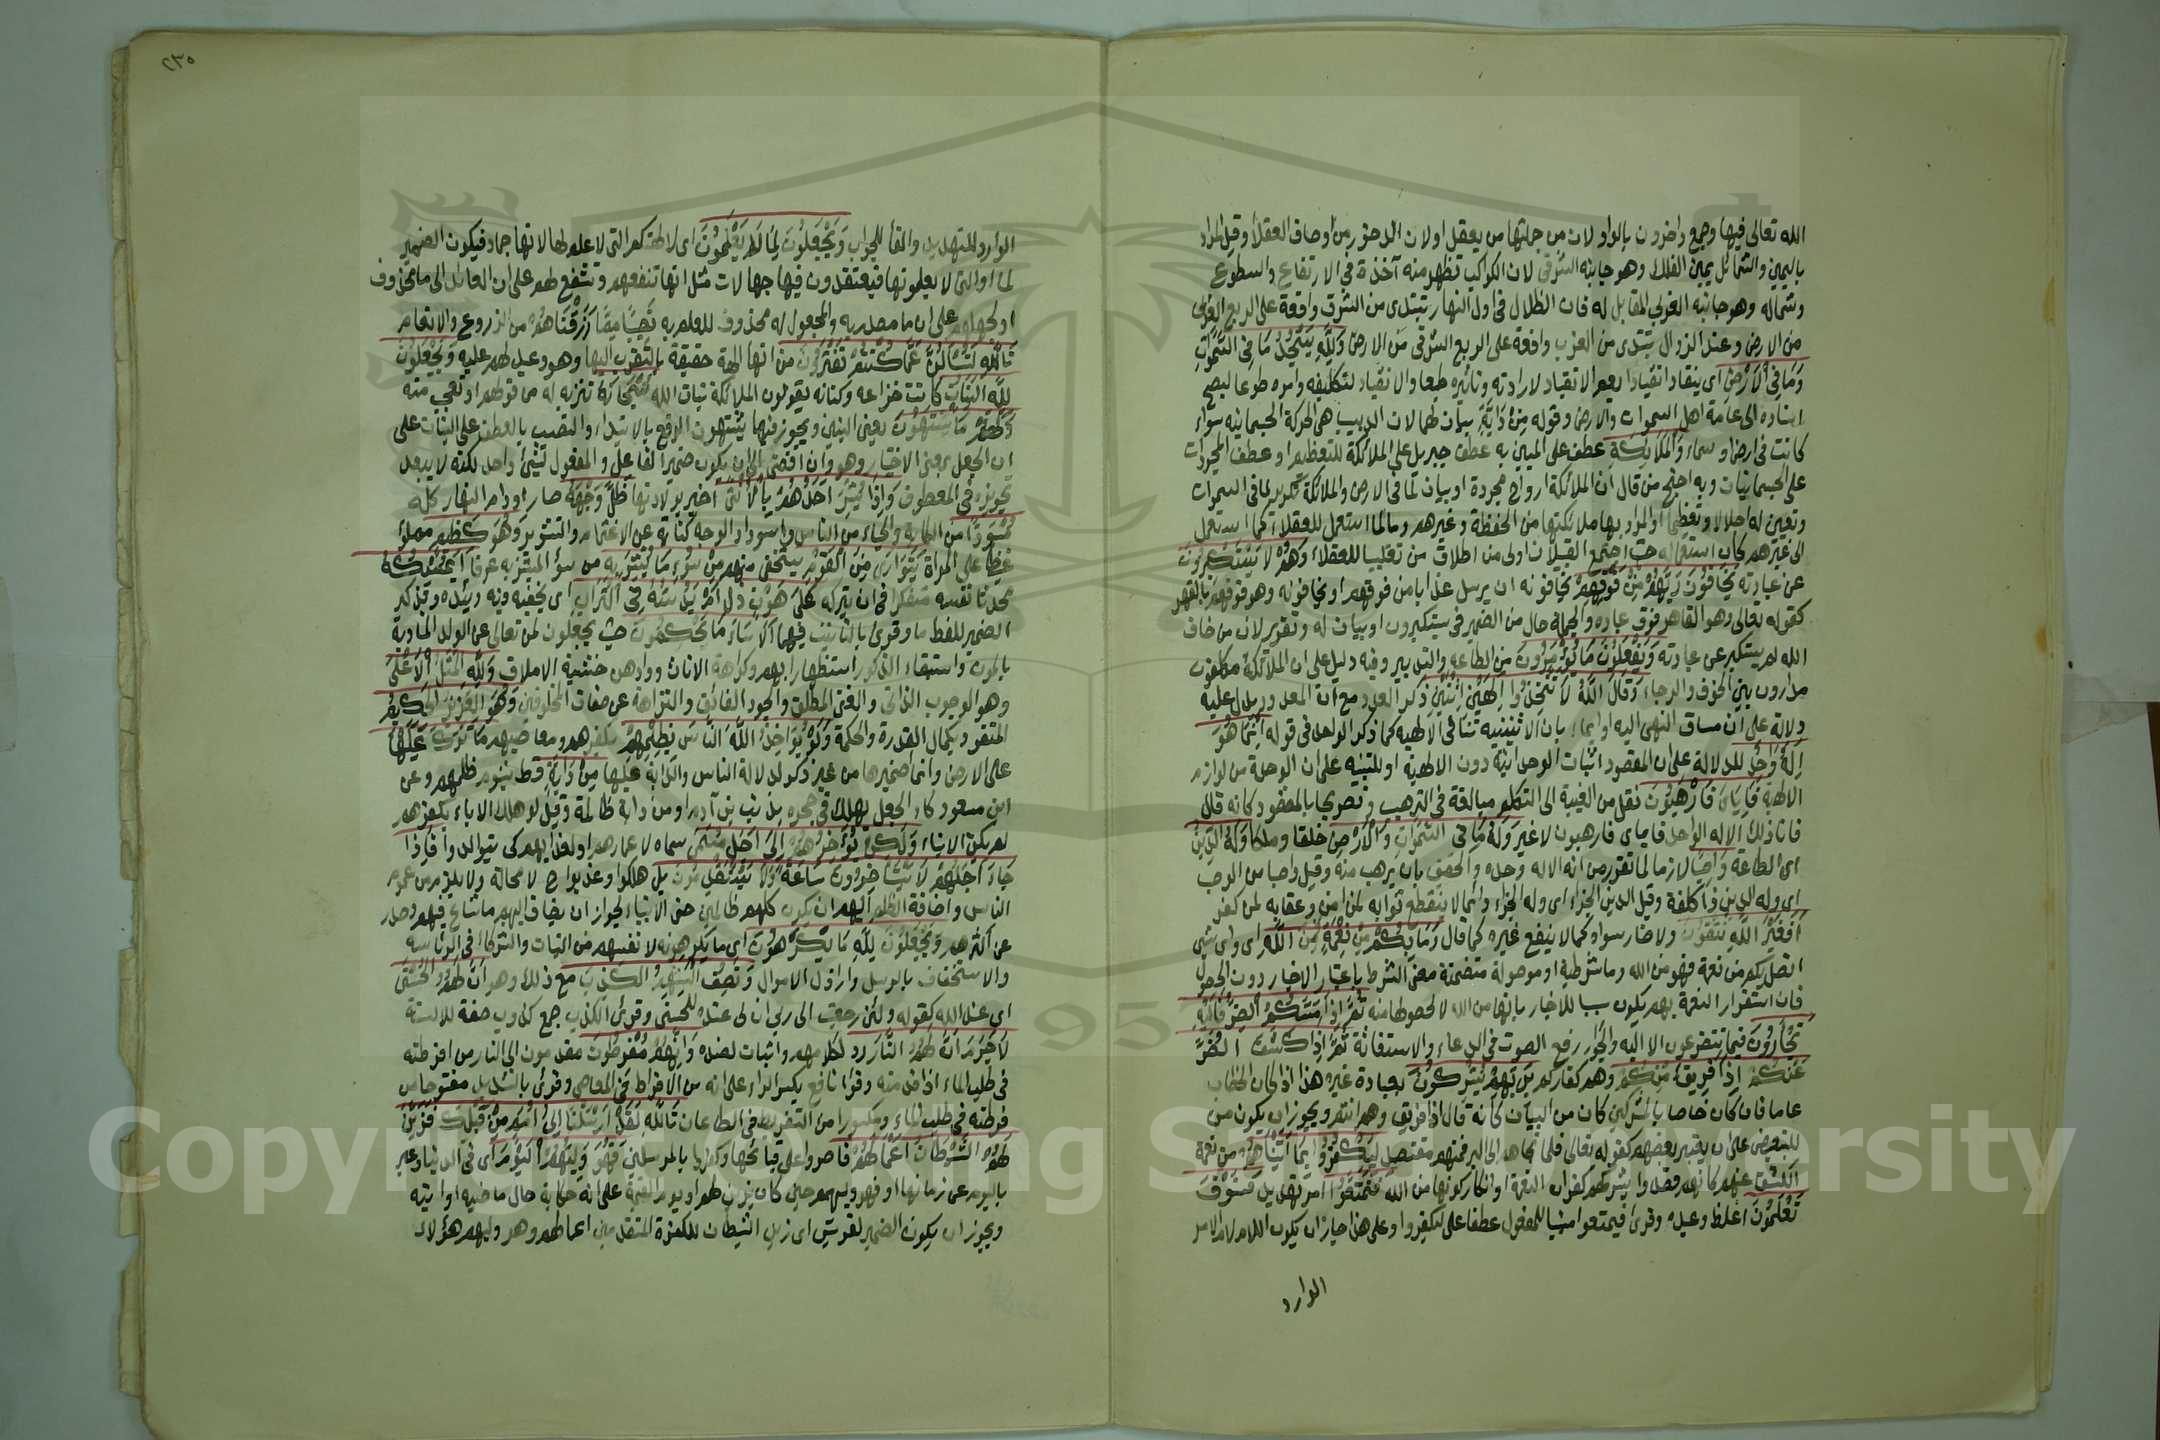 الله تعالى فيها وجمع داخرون بالواو لان من جملتها من يعقل اولان الدخور من اوصاف العقلا وقيل المراد
باليمين والشمائل يمين الفلك وهو جانبه الشرقي لان الكواكب تظهر منه آخذة في الارتفاع والسطوع
وشماله وهو جانبه الغربي المقابل له فان الظلال في اول النهار تبتدى من الشرق واقعة على الربع الغربي
من الارض وعند الزوال تبتدى من الغرب واقعة على الربع الشرقي من الارض ولله يسجد ما في السموات
وما في الارض اى ينقاد انقيادا يعم الانقياد لارادته وتاثيره طبعا والانقياد لتكليفه وامره طوعا ليصح
اسناده الى عامة اهل السموات والارض وقوله من دابة بيان لهما لان الدبيب هي الحركة الجسمانيه سواء
كانت في ارض او سماء والملائكة عطف على المبين به عطف جبريل على الملائكة للتعظيم او عطف المجردات
على الجسمانيات وبه احتج من قال ان الملائكة ارواح مجردة او بيان لما في الارض والملائكة تكرير لما في السموات
وتعيين له اجلالا وتعظيما او المراد بها ملائكتها من الحفظة وغيرهم وما لما استعمل للعقلا كما استعمل
لغيرهم كان استعماله حيث اجتمع القبيلان اولى من اطلاق من تغليبا للعقلاء وهم لا يستكبرون
عن عبادته يخافون ربهم من فوقهم يخافونه ان يرسل عذابا من فوقهم او يخافونه وهو فوقهم بالقهر
كقوله تعالى وهو القاهر فوق عباده والجملة حال من الضمير في يستكبرون او بيان له وتقرير لان من خاف
الله لم يستكبر عن عبادته ويفعلون ما يؤمرون من الطاعه والتدبير وفيه دليل على ان الملائكة مكلفون
مدارون بين الخوف والرجاء وقال الله لا تتخذوا الهين اثنين ذكر العدد مع ان المعدود يدل عليه
دلالة على ان مساق النهى اليه او ايماء بان الاثنينيه تنافى الالهيه كما ذكر الواحد فى قوله انما هو
اله واحد للدلالة على ان المقصود اثبات الوحدانية دون الالهية او للتنبيه على ان الوحدة من لوازم
الالهية فاياى فارهبون نقل من الغيبة الى التكلم مبالغة في الترهيب وتصريحا بالمقصود كانه قال
فانا ذلك الاله الواحد فاياى فارهبون لا غير وله ما في السموات والارض خلقا وملكا وله الدين
اى الطاعة واصبا لازما لما تقرر من انه الاله وحده والحقيق بان يرهب منه وقيل واصبا من الوصب
اى وله الدين ذا كلفة وقيل الدين الجزاء اى وله الجزاء دائما لا ينقطع ثوابه لمن امن وعقابه لمن كفر
افغير الله تتقون ولا ضار سواه كما لا ينفع غيره كما قال وما بكم من نعمة فمن الله اى واى شى
اتصل بكم من نعمة فهو من الله وما شرطية او موصولة متضمنة معنى الشرط باعتبار الاخبار دون الحصول
فان استقرار النعمة بهم يكون سببا للاخبار بانها من الله لا لحصولها منه ثم اذا مسكم الضر فاليه
تجأرون فما تتضرعون الا اليه والجوار رفع الصوت فى الدعاء والاستغاثة ثم اذا كشف الضر
عنكم اذا فريق منكم وهم كفاركم بربهم يشركون بعبادة غيره هذا اذا كان الخطاب
عاما فان كان خاصا بالمشركين كان من للبيان كانه قال اذا فريق وهم انتم ويجوز ان يكون من
للتبعيض على ان يعتبر بعضهم كقوله تعالى فلما نجاهم الى البر فمنهم مقتصد ليكفروا بما اتيناهم من نعمة
الكشف عنهم كانهم قصدوا بشركهم كفران النعمة او انكار كونها من الله فتمتعوا امر تهديد فسوف
تعلمون اغلظ وعيده وقرئ فيمتعوا مبنيا للمفعول عطفا على ليكفروا وعلى هذا جاز ان يكون اللام لام الامر
الوارد
٢٣٥
الوارد للتهديد والفا للجواب ويجعلون لما لا يعلمون اى لالهتكم التى لا علم لها لانها جماد فيكون الضمير
لما او التى لا يعلمونها فيعتقدون فيها جهالات مثل انها تنفعهم وتشفع لهم على ان العائد الى ما محذوف
او لجهلهم على ان ما مصدريه والمجعول له محذوف للعلم به نصيبا مما رزقناهم من الزروع والانعام
تالله لتسألن عما كنتم تفترون من انها الهة حقيقة بالتقرب اليها وهو وعيد لهم عليه ويجعلون
لله البنات كانت خزاعه وكنانه يقولون الملائكة بنات الله سبحانه تنزيه له من قولهم او تعجب منه
ولهم ما يشتهون يعنى البنين ويجوز فيما يشتهون الرفع بالابتداء والنصب بالعطف على البنات على
ان الجعل بمعنى الاختيار وهو وان افضى الى ان يكون ضمير الفاعل والمفعول لشئ واحد لكنه لا يبعد
تجويزه في المعطوف واذا بشر احدهم بالانثى اخبر بولادتها ظل وجهه صار او دام النهار كله
مسودا من الكابه والحياء من الناس واسوداد الوجه كناية عن الاغتمام والتشوير وهو كظيم مملوء
غيظا على المراة يتوارى من القوم يستخفى منهم من سوء ما بشر به من سوء المبشر به عرفا ايمسكه
محدثا نفسه متفكرا فى ان يتركه على هون ذل ام يدسه في التراب اى يخفيه فيه ويئده وتذكير
الضمير للفظ ما وقرئ بالتانيث فيهما الا ساء ما يحكمون حيث يجعلون لمن تعالى عن الولد
بالموت واستبقاء الذكور استظهارا بهم وكراهة الاناث ووادهن خشية الاملاق ولله المثل الاعلى
وهو الوجوب الذاتى والغنى المطلق والجود الفائق والنزاهة عن صفات المخلوقين وهو العزيز الحكيم
المتفرد بكمال القدرة والحكمة ولو يؤاخذ الله الناس بظلمهم بكفرهم ومعاصيهم ما ترك عليها
على الارض وانما اضمرها من غير ذكر لدلالة الناس والدابة عليها من دابة قط بشوم ظلمهم وعن
ابن مسعود كاد الجعل يهلك في جحره بذنب بن آدم او من دابة ظالمة وقيل لو هلك الاباء بكفرهم
لم يكن الابناء ولكن يؤخرهم الى اجل مسمى سماه لاعمارهم او لعذابهم كى يتوالدوا فاذا
جاء اجلهم لا يستأخرون ساعة ولا يستقدمون بل هلكوا وعذبوا ح لا محالة ولا يلزم من عموم
الناس واضافة الظلم اليهم ان يكون كلهم ظالمين حتى الانبياء لجواز ان يضاف اليهم ما شاع فيهم وصدر
عن اكثرهم ويجعلون لله ما يكرهون اى ما يكرهونه لانفسهم من البنات والشركاء في الرياسه
والاستخفاف بالرسل واراذل الاموال وتصف السنتهم الكذب مع ذلك وهو ان لهم الحسنى
اى عند الله كقوله ولئن رجعت الى ربى ان لى عنده للحسنى وقرئ الكذب جمع كذوب صفة للالسنة
لا جرم ان لهم النار رد لكلامهم واثبات لضده وانهم مفرطون مقدمون الى النار من افرطته
فى طلب الماء اذا قدمته وقرأ نافع بكسر الراء على انه من الافراط في المعاصى وقرئ بالتشديد مفتوحا من
فرطته فى طلب الماء ومكسورا من التفريط فى الطاعات تالله لقد ارسلنا الى امم من قبلك فزين
لهم الشيطان اعمالهم فاصروا على قبائحها وكفروا بالمرسلين فهو وليهم اليوم اى فى الدنيا وعبر
باليوم عن زمانها او فهو وليهم حين كان يزين لهم او يوم القيمة على انه حكاية حال ماضيه او اتيه
ويجوز ان يكون الضمير لقريش اى زين الشيطان للكفرة المتقدمين اعمالهم وهو وليهم هؤلاء
Copyright © King Saud University